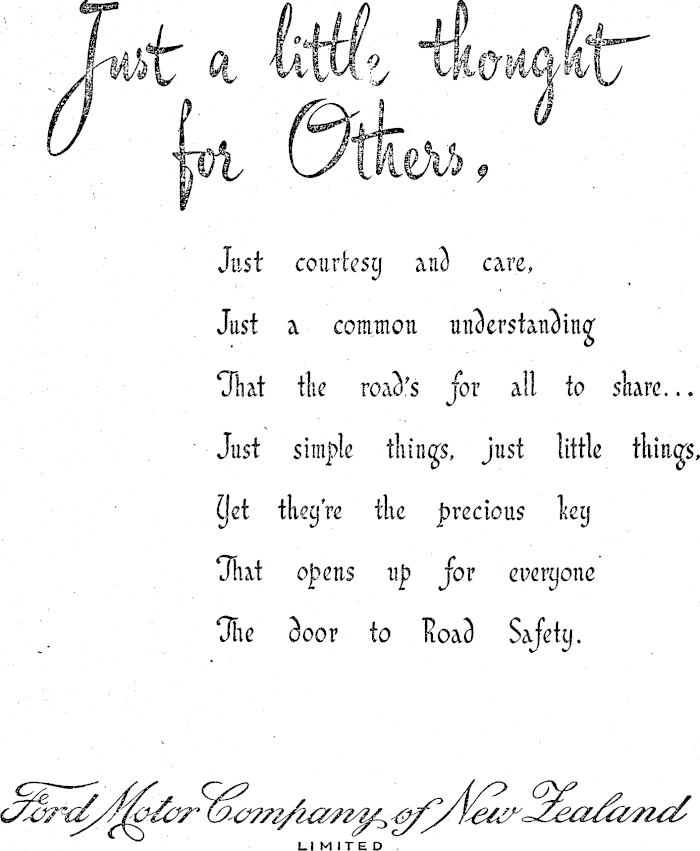 Just a little thought
for Others,
Just courtesy and care,
Just a common understanding
That the road's for all to share...
Just simple things, just little things,
Yet they're the precious key
That opens up for everyone
The door to Road Safety.
Ford Motor Company of New Zealand
LIMITED